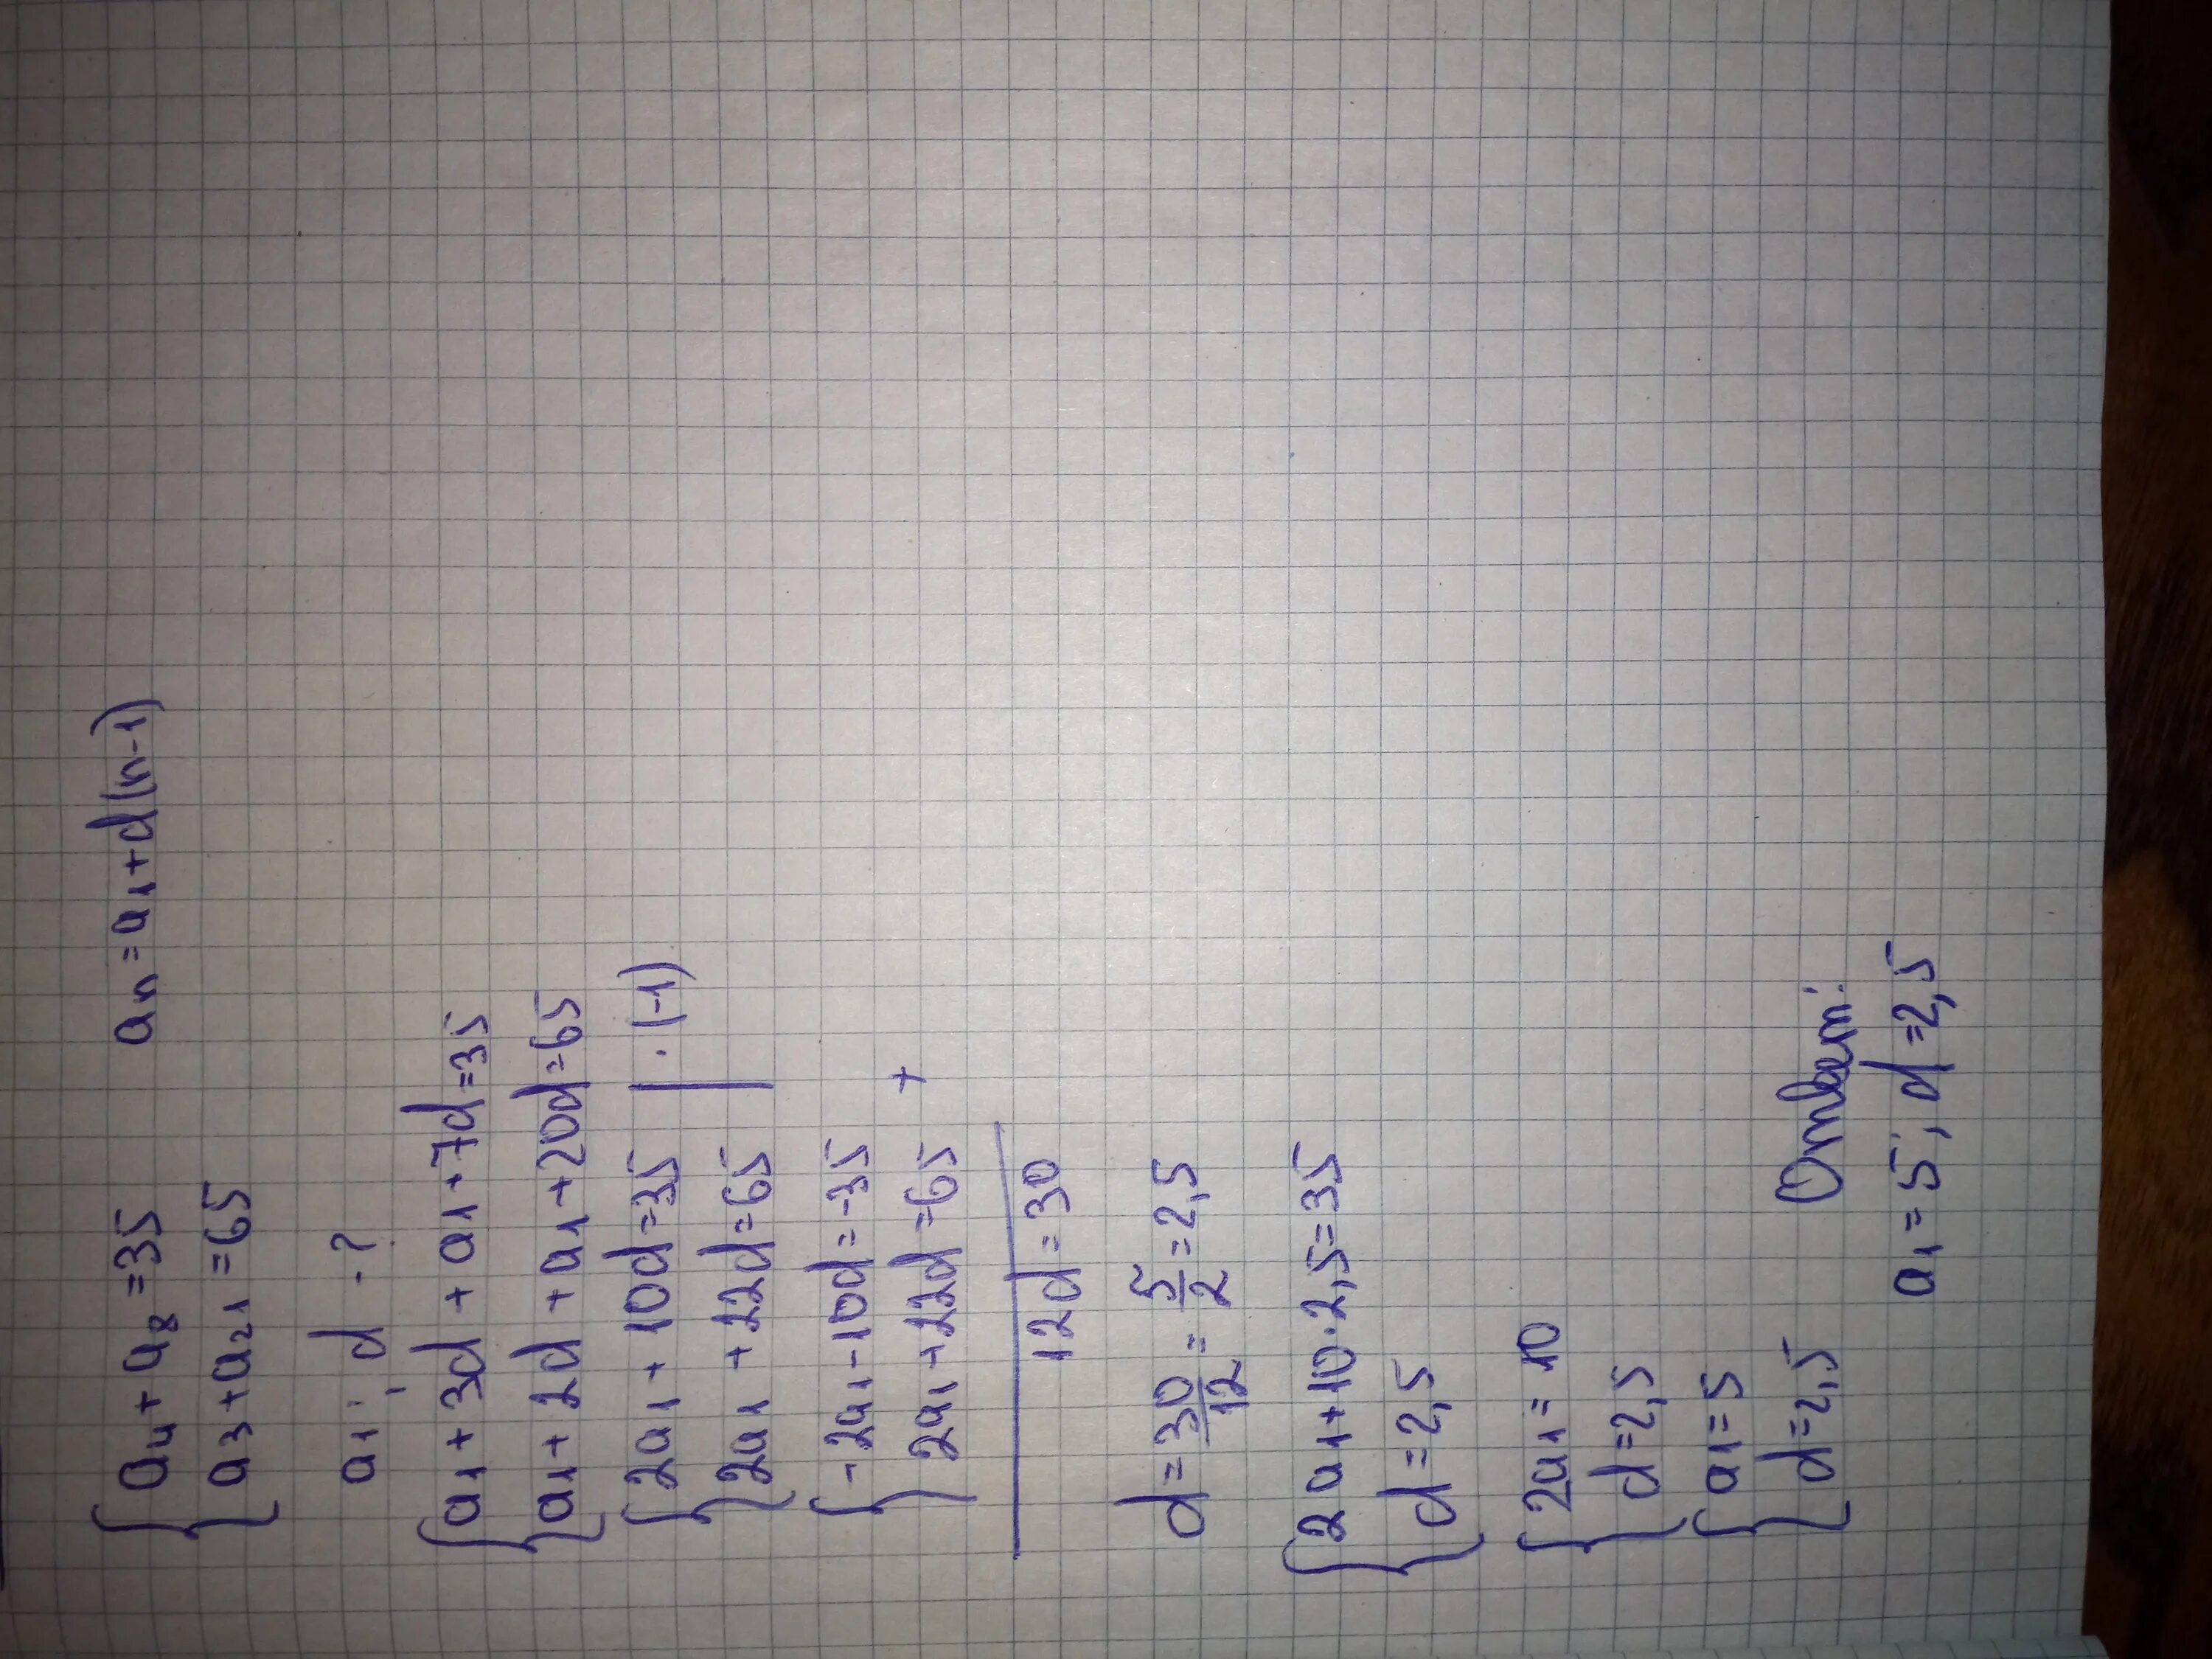 { a₄ + a₈ = 35    aₙ = a₁ + d(n-1)
a₃ + a₂₁ = 65
a₁; d - ?
{ a₁ + 3d + a₁ + 7d = 35
a₁ + 2d + a₁ + 20d = 65
{ 2a₁ + 10d = 35 | · (-1)
2a₁ + 22d = 65
{ -2a₁ - 10d = -35
2a₁ + 22d = 65 +
12d = 30
d = 30/12 = 5/2 = 2,5
{ 2a₁ + 10 · 2,5 = 35
d = 2,5
{ 2a₁ = 10
d = 2,5
{ a₁ = 5
d = 2,5
Ответ:
a₁ = 5; d = 2,5